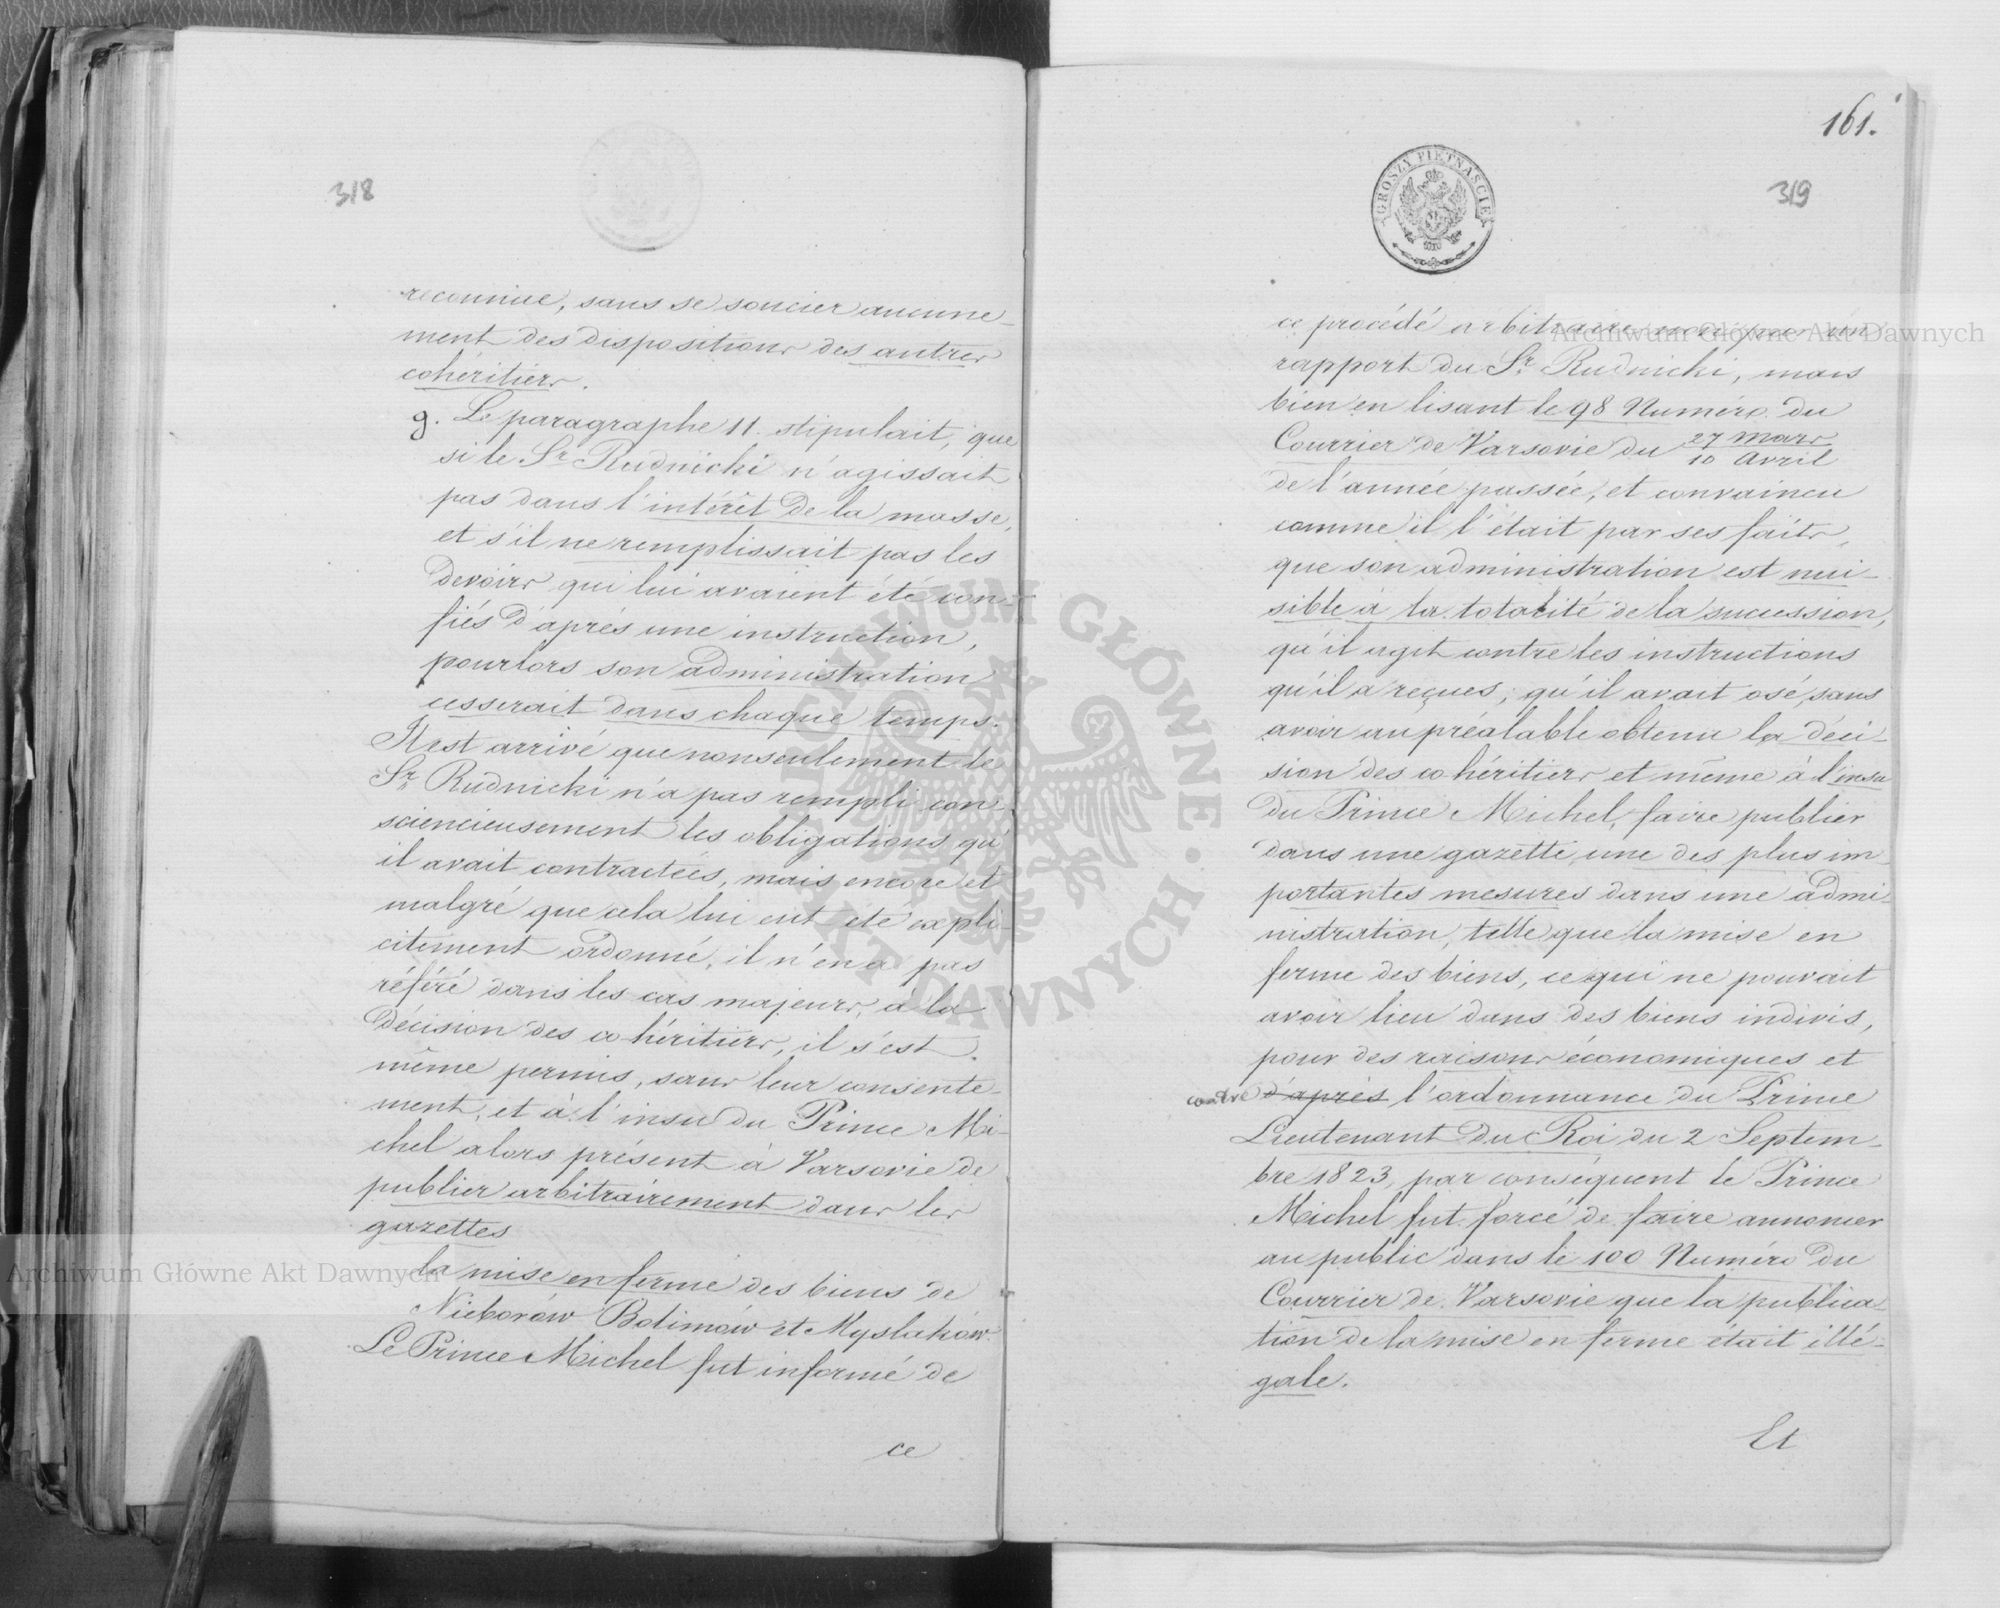 318
reconnue, sans se soucier aucune-
ment des dispositions des autres
cohéritiers.
g. Le paragraphe 11 stipulait, que
si le Sr Rudnicki n'agissait
pas dans l'intérêt de la masse,
et s'il ne remplissait pas les
devoirs qui lui avaient été con-
fiés d'après une instruction,
pourlors son administration
cesserait dans chaque temps.
Il est arrivé que nonseulement le
Sr Rudnicki n'a pas rempli con-
sciencieusement les obligations qu'
il avait contractées, mais encore et
malgré que cela lui eut été expli-
citement ordonné, il n'en a pas
référé dans les cas majeurs, à la
décision des cohéritiers, il s'est
même permis, sans leur consente-
ment, et à l'insu du Prince Mi-
chel alors présent à Varsovie de
publier arbitrairement dans les
gazettes
la mise en ferme des biens de
Nieborów Bolimów et Mysłaków.
Le Prince Michel fut informé de
ce
161.
GROSZY PIĘTNAŚCIE
319
ce procédé arbitraire non par un
rapport du Sr. Rudnicki, mais
bien en lisant le 98 Numéro du
Courrier de Varsovie du 27 Mars
10 Avril
de l'année passée, et convaincu
comme il l'était par ses faits,
que son administration est nui-
sible à la totalité de la succession,
qu'il agit contre les instructions
qu'il a reçues; qu'il avait osé, sans
avoir au préalable obtenu la déci-
sion des cohéritiers et même à l'insu
du Prince Michel, faire publier
dans une gazette, une des plus im-
portantes mesures dans une admi-
nistration, telle que la mise en
ferme des biens, ce qui ne pouvait
avoir lieu dans des biens indivis,
pour des raisons économiques et
contre d'après l'ordonnance du Prince
Lieutenant du Roi du 2 Septem-
bre 1823, par conséquent le Prince
Michel fut forcé de faire annoncer
au public dans le 100 Numéro du
Courrier de Varsovie que la publica-
tion de la mise en ferme était illé-
gale.
Et
Archiwum Główne Akt Dawnych
Archiwum Główne Akt Dawnych
ARCHIWUM GŁÓWNE AKT DAWNYCH